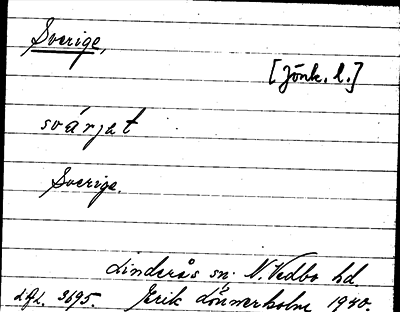 Sverige,
[Jönk. l.]
svárjet
Sverige.
Linderås sn. N. Vedbo hd
3695. Erik Lönnerholm 1940.